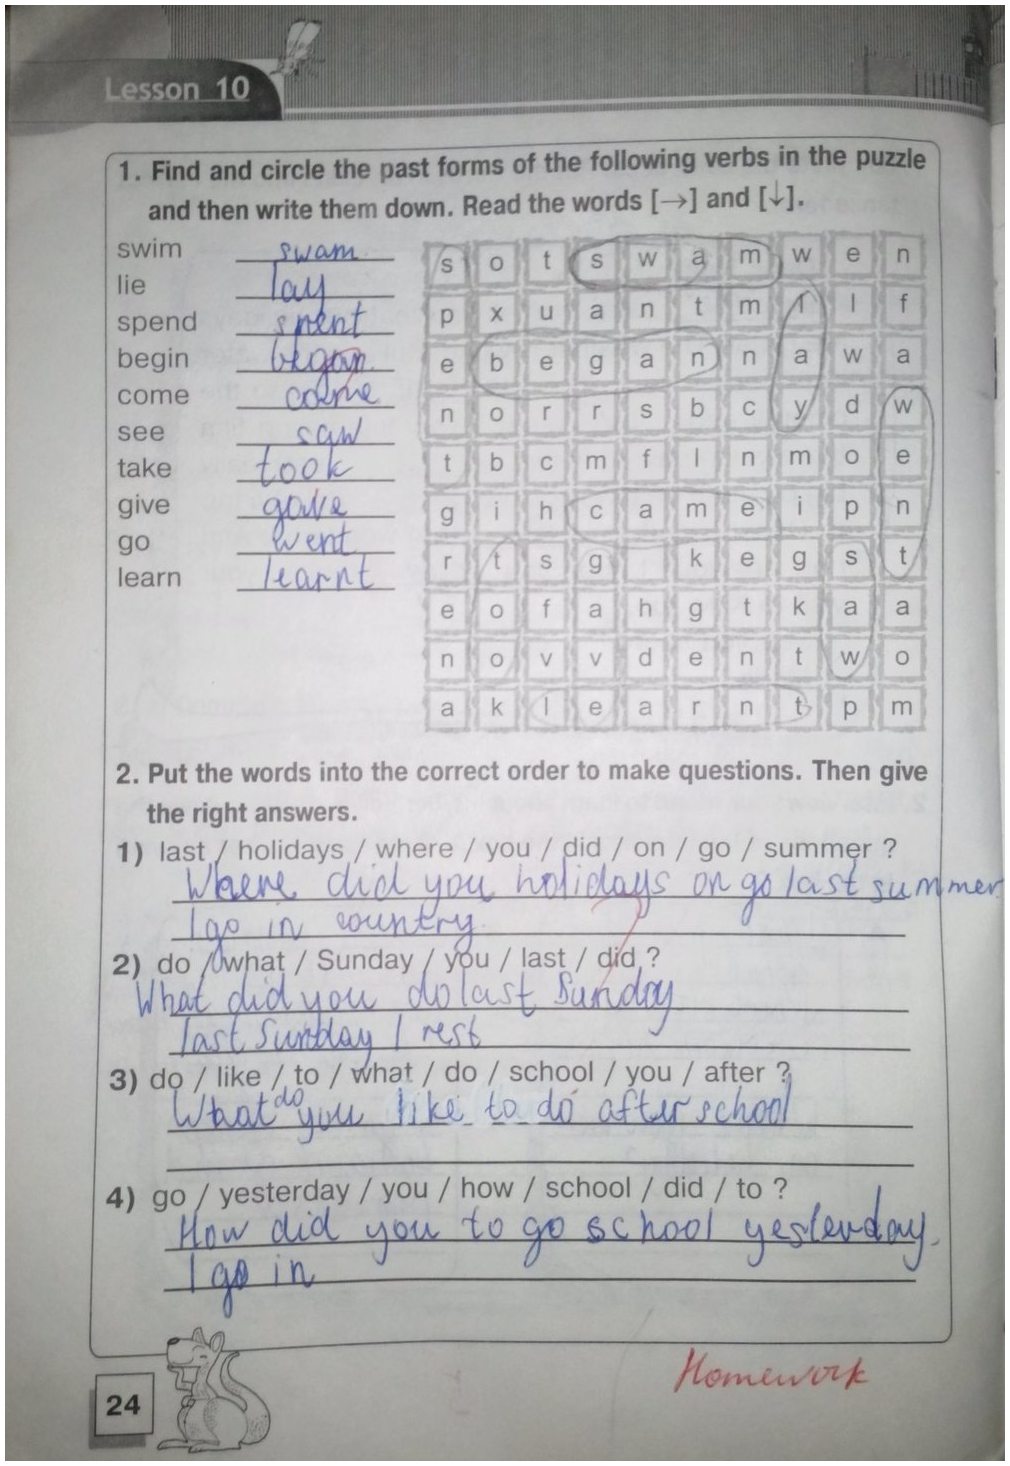 Lesson 10
1. Find and circle the past forms of the following verbs in the puzzle
and then write them down. Read the words [→] and [↓].
swim swam
lie lay
spend spent
begin began
come came
see saw
take took
give gave
go went
learn learnt
s o t s w a m w e n
p x u a n t m l l f
e b e g a n n a w a
n o r r s b c y d w
t b c m f l n m o e
g i h c a m e i p n
r t s g k e g s t
e o f a h g t k a a
n o v v d e n t w o
a k l e a r n t p m
2. Put the words into the correct order to make questions. Then give
the right answers.
1) last / holidays / where / you / did / on / go / summer ?
Where did you holidays on go last summer
I go in country.
2) do / what / Sunday / you / last / did ?
What did you do last Sunday
last Sunday I rest
3) do / like / to / what / do / school / you / after ?
What do you like to do after school
4) go / yesterday / you / how / school / did / to ?
How did you to go school yesterday.
I go in
Homework
24